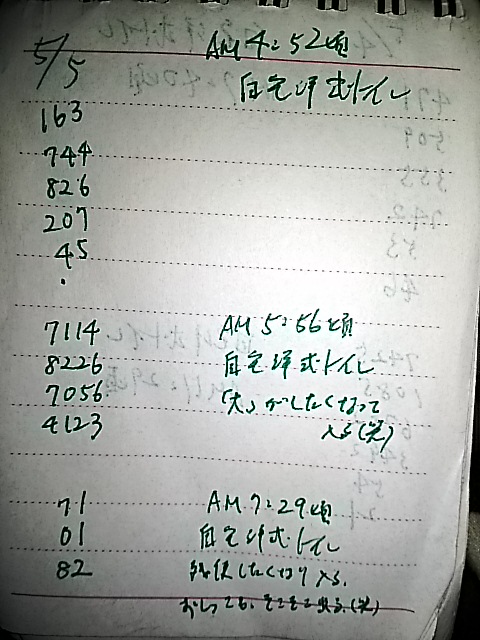 5/5 AM 4:52頃
自宅洋式トイレ
163
744
826
207
45
.
7114 AM 5:56頃
8226 自宅洋式トイレ
7056 「大」がしたくなって
4123 入る(笑)
71 AM 7:29頃
01 自宅洋式トイレ
82 したくなり入る.
(笑)